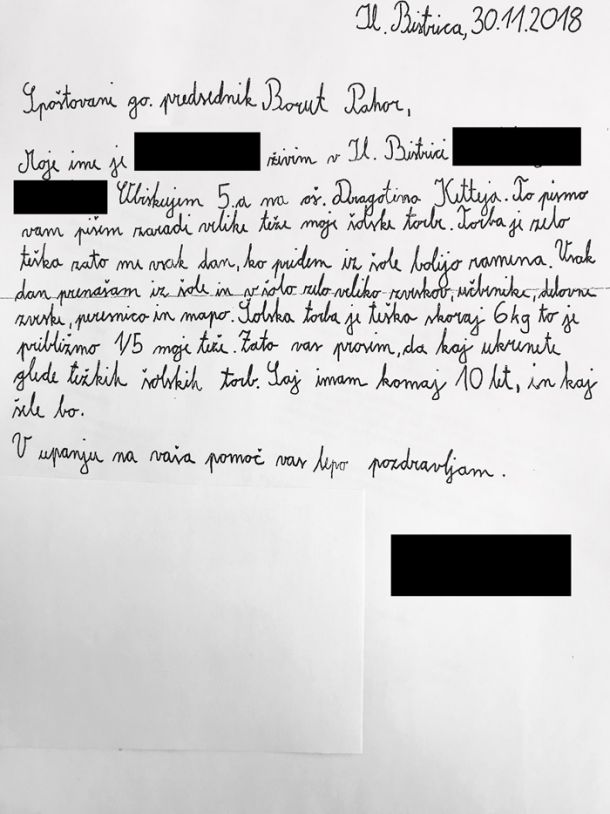 Il. Bistrica, 30.11.2018
Spoštovani go. predsednik Borut Pahor,
Moje ime je živim v Il. Bistrici
Obiskujem 5.a na oš. Dragotina Ketteja. To pismo
vam pišem zaradi velike teže moje šolske torbe. Torba je zelo
težka zato me vsak dan, ko pridem iz šole bolijo ramena. Vsak
dan prenašam iz šole in v šolo zelo veliko zvezkov, učbenike, delovne
zvezke, peresnico in mapo. Šolska torba je težka skoraj 6 kg to je
približno 1/5 moje teže. Zato vas prosim, da kaj ukrenete
glede težkih šolskih torb. Saj imam komaj 10 let, in kaj
šele bo.
V upanju na vašo pomoč vas lepo pozdravljam.